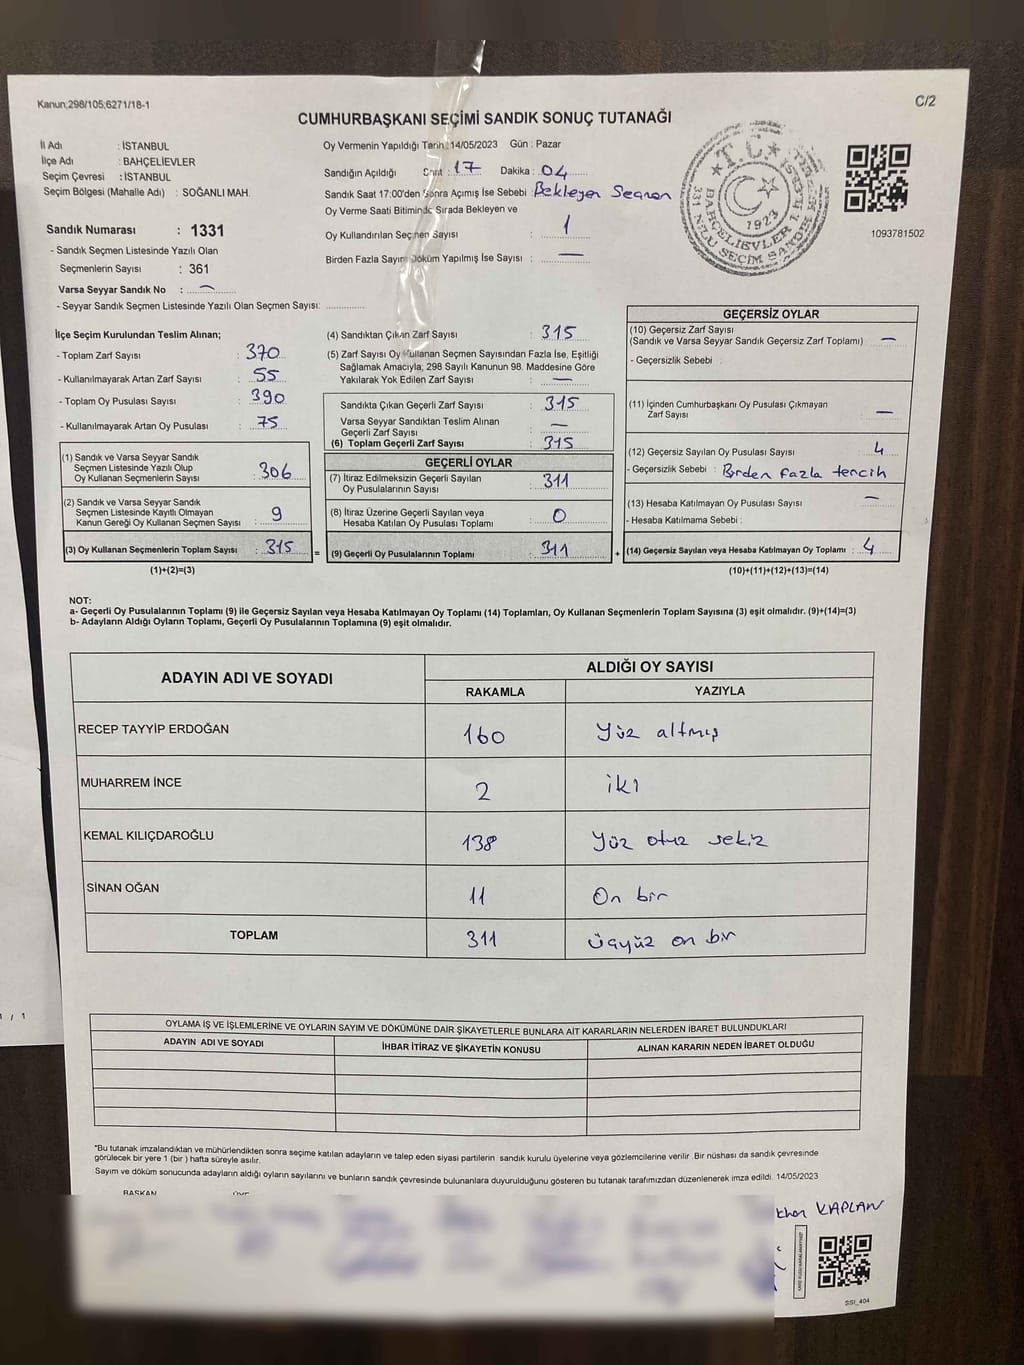 Kanun;298/105;6271/18-1
C/2
CUMHURBAŞKANI SEÇİMİ SANDIK SONUÇ TUTANAĞI
İl Adı : İSTANBUL
İlçe Adı : BAHÇELİEVLER
Seçim Çevresi : İSTANBUL
Seçim Bölgesi (Mahalle Adı) : SOĞANLI MAH.
Sandık Numarası : 1331
- Sandık Seçmen Listesinde Yazılı Olan
Seçmenlerin Sayısı : 361
Varsa Seyyar Sandık No : —
- Seyyar Sandık Seçmen Listesinde Yazılı Olan Seçmen Sayısı:
Oy Vermenin Yapıldığı Tarih: 14/05/2023 Gün : Pazar
Sandığın Açıldığı Saat : 17 Dakika : 04
Sandık Saat 17:00'den Sonra Açımış İse Sebebi : Bekleyen Seçmen
Oy Verme Saati Bitiminde Sırada Bekleyen ve
Oy Kullandırılan Seçmen Sayısı : 1
Birden Fazla Sayım Döküm Yapılmış İse Sayısı : —
T.C.
1923
BAHÇELİEVLER 1.
1331 NOLU SEÇİM SANDIK
1093781502
İlçe Seçim Kurulundan Teslim Alınan;
- Toplam Zarf Sayısı : 370
- Kullanılmayarak Artan Zarf Sayısı : 55
- Toplam Oy Pusulası Sayısı : 390
- Kullanılmayarak Artan Oy Pusulası : 75
(1) Sandık ve Varsa Seyyar Sandık
Seçmen Listesinde Yazılı Olup
Oy Kullanan Seçmenlerin Sayısı : 306
(2) Sandık ve Varsa Seyyar Sandık
Seçmen Listesinde Kayıtlı Olmayan
Kanun Gereği Oy Kullanan Seçmen Sayısı : 9
(3) Oy Kullanan Seçmenlerin Toplam Sayısı : 315 =
(1)+(2)=(3)
(4) Sandıktan Çıkan Zarf Sayısı : 315
(5) Zarf Sayısı Oy Kullanan Seçmen Sayısından Fazla İse, Eşitliği
Sağlamak Amacıyla; 298 Sayılı Kanunun 98. Maddesine Göre
Yakılarak Yok Edilen Zarf Sayısı : —
Sandıkta Çıkan Geçerli Zarf Sayısı : 315
Varsa Seyyar Sandıktan Teslim Alınan
Geçerli Zarf Sayısı : —
(6) Toplam Geçerli Zarf Sayısı : 315
GEÇERLİ OYLAR
(7) İtiraz Edilmeksizin Geçerli Sayılan
Oy Pusulalarının Sayısı : 311
(8) İtiraz Üzerine Geçerli Sayılan veya
Hesaba Katılan Oy Pusulası Toplamı : 0
(9) Geçerli Oy Pusulalarının Toplamı : 311 +
GEÇERSİZ OYLAR
(10) Geçersiz Zarf Sayısı
(Sandık ve Varsa Seyyar Sandık Geçersiz Zarf Toplamı) : —
- Geçersizlik Sebebi :
(11) İçinden Cumhurbaşkanı Oy Pusulası Çıkmayan
Zarf Sayısı : —
(12) Geçersiz Sayılan Oy Pusulası Sayısı : 4
- Geçersizlik Sebebi : Birden fazla tercih
(13) Hesaba Katılmayan Oy Pusulası Sayısı : —
- Hesaba Katılmama Sebebi :
(14) Geçersiz Sayılan veya Hesaba Katılmayan Oy Toplamı : 4
(10)+(11)+(12)+(13)=(14)
NOT:
a- Geçerli Oy Pusulalarının Toplamı (9) ile Geçersiz Sayılan veya Hesaba Katılmayan Oy Toplamı (14) Toplamları, Oy Kullanan Seçmenlerin Toplam Sayısına (3) eşit olmalıdır. (9)+(14)=(3)
b- Adayların Aldığı Oyların Toplamı, Geçerli Oy Pusulalarının Toplamına (9) eşit olmalıdır.
ADAYIN ADI VE SOYADI ALDIĞI OY SAYISI
RAKAMLA YAZIYLA
RECEP TAYYİP ERDOĞAN 160 Yüz altmış
MUHARREM İNCE 2 iki
KEMAL KILIÇDAROĞLU 138 Yüz otuz sekiz
SİNAN OĞAN 11 On bir
TOPLAM 311 Üçyüz on bir
OYLAMA İŞ VE İŞLEMLERİNE VE OYLARIN SAYIM VE DÖKÜMÜNE DAİR ŞİKAYETLERLE BUNLARA AİT KARARLARIN NELERDEN İBARET BULUNDUKLARI
ADAYIN ADI VE SOYADI İHBAR İTİRAZ VE ŞİKAYETİN KONUSU ALINAN KARARIN NEDEN İBARET OLDUĞU
"Bu tutanak imzalandıktan ve mühürlendikten sonra seçime katılan adayların ve talep eden siyasi partilerin sandık kurulu üyelerine veya gözlemcilerine verilir .Bir nüshası da sandık çevresinde
görülecek bir yere 1 (bir ) hafta süreyle asılır.
Sayım ve döküm sonucunda adayların aldığı oyların sayılarını ve bunların sandık çevresinde bulunanlara duyurulduğunu gösteren bu tutanak tarafımızdan düzenlenerek imza edildi. 14/05/2023
BAŞKAN
KAPLAN
SSI_404
1 / 1